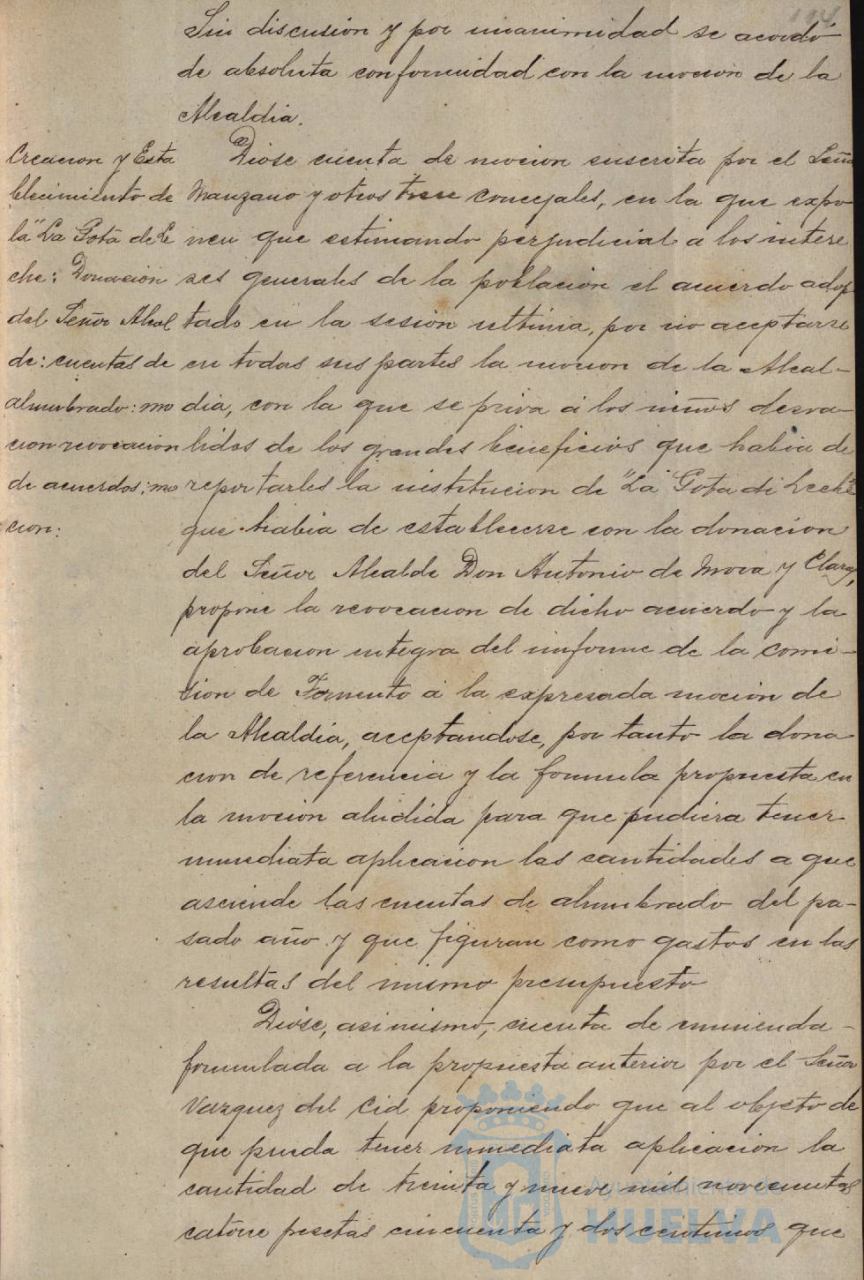 114
Sin discusión y por unanimidad se acordó
de absoluta conformidad con la mocion de la
Alcaldia.
Creacion y Esta
blecimiento de
la "La Gota de Le
che: Donación
del Señor Alcal
de: cuentas de
alumbrado: mo
cion revocacion
de acuerdos: mo
cion:
Dióse cuenta de mocion suscrita por el Señor
Manzano y otros trece concejales, en la que expo-
nen que estimando perjudicial a los intere
ses generales de la población el acuerdo adop
tado en la sesión ultima, por no aceptarse
en todas sus partes la mocion de la Alcal-
dia, con la que se priva á los niños desva-
lidos de los grandes beneficios que habia de
reportarles la institucion de "La Gota de Leche"
que habia de establecerse con la donacion
del Señor Alcalde Don Antonio de Mora y Claros,
propone la revocacion de dicho acuerdo y la
aprobacion integra del informe de la comi-
sion de Fomento á la expresada moción de
la Alcaldía, aceptandose, por tanto la dona
cion de referencia y la formula propuesta en
la moción aludida para que pudiera tener
inmediata aplicacion las cantidades a que
asciende las cuentas de alumbrado del pa-
sado año y que figuran como gastos en las
resultas del mismo presupuesto
Dióse, asimismo, cuenta de enmienda-
formulada a la propuesta anterior por el Señor
Vazquez del Cid proponiendo que al objeto de
que pueda tener inmediata aplicacion la
cantidad de treinta y nueve mil novecientas
catorce pesetas cincuenta y dos centimos que
Ayuntamiento de
HUELVA